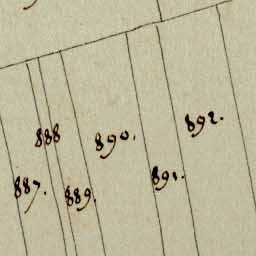 887.
888
889.
890.
891.
892.